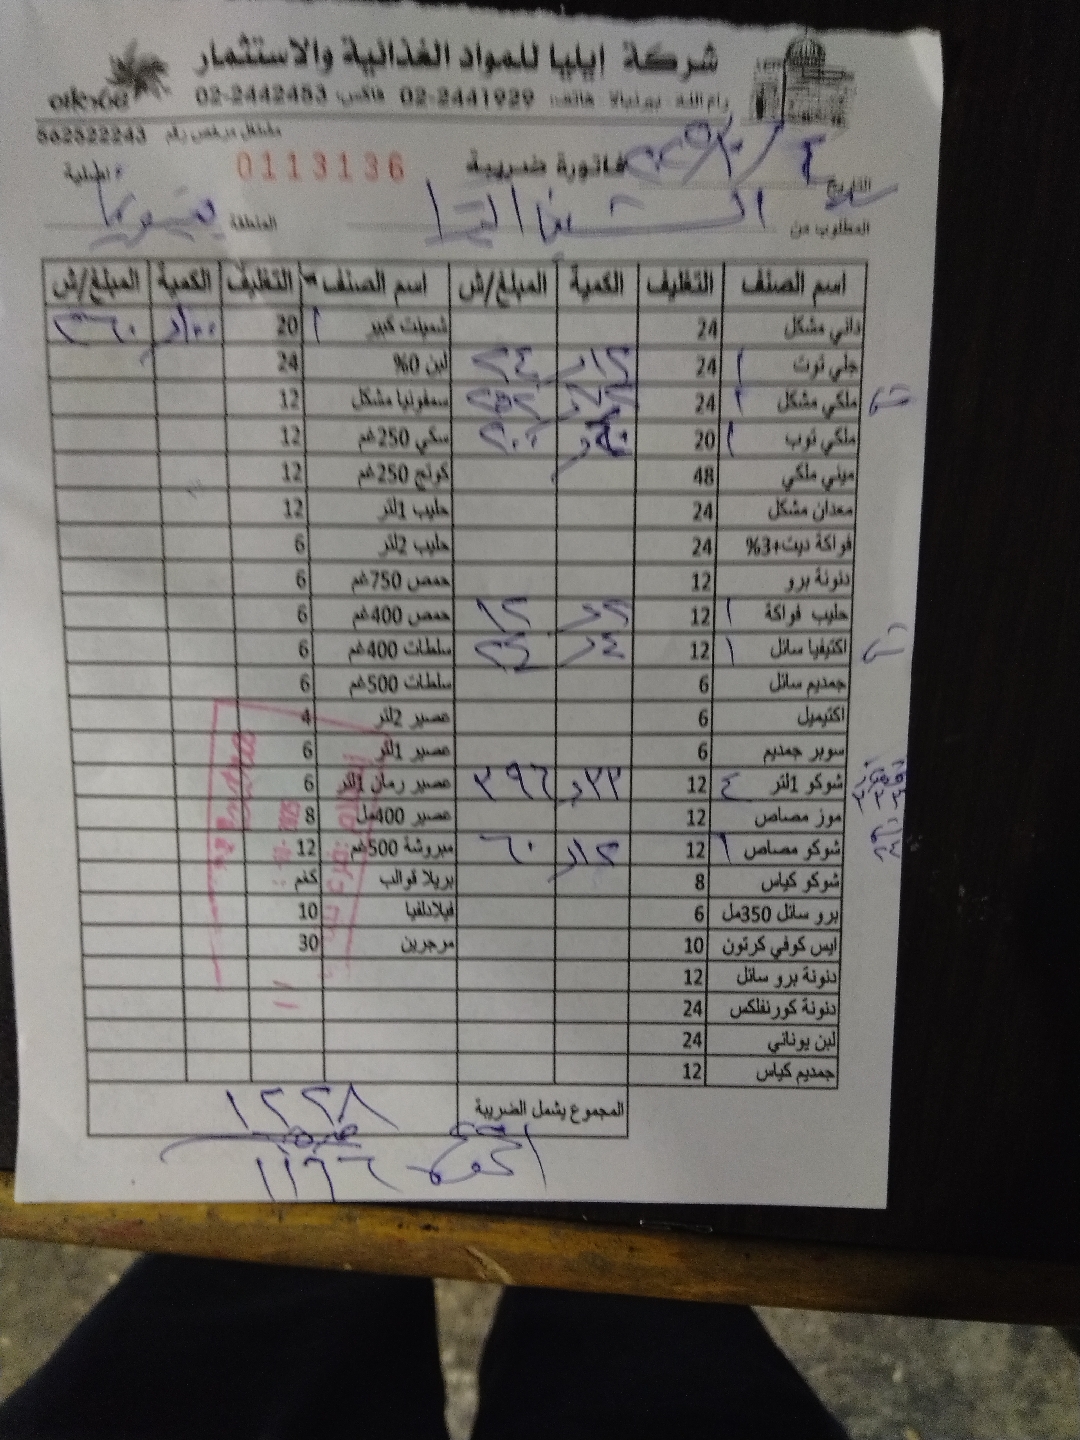 شركة إيليا للمواد الغذائية والاستثمار
رام الله بيرنبالا هاتف: 02-2441929 فاكس: 02-2442453
مشتغل مرخص رقم 562522243
فاتورة ضريبة 0113136
التاريخ
المطلوب من المنطقة
اسم الصنف التغليف الكمية المبلغ/ش اسم الصنف التغليف الكمية المبلغ/ش
داني مشكل 24 شمينت كبير ١ 20 ٣٦٠
جلي توت ١ 24 ١٢ ٢٤ لبن 0% 24
ملكي مشكل 24 سمفونيا مشكل 12
ملكي توب ١ 20 سكي 250غم 12
ميني ملكي 48 كوتج 250غم 12
معدان مشكل 24 حليب 1لتر 12
فواكة ديت+3% 24 حليب 2لتر 6
دنونة برو 12 حمص 750غم 6
حليب فواكة ١ 12 ١٢ حمص 400غم 6
اكتيفيا سائل ١ 12 ٢٤ سلطات 400غم 6
جمديم سائل 6 سلطات 500غم 6
اكتيميل 6 عصير 2لتر 4
سوبر جمديم 6 عصير 1لتر 6
شوكو 1لتر ٤ 12 ٣٣ ٣٩٦ عصير رمان 1لتر 6
موز مصاص 12 عصير 400مل 8
شوكو مصاص ١ 12 ١٢ ٦٠ مبروشة 500غم 12
شوكو كياس 8 بريلا قوالب كغم
برو سائل 350مل 6 فيلادلفيا 10
ايس كوفي كرتون 10 مرجرين 30
دنونة برو سائل 12
دنونة كورنفلكس 24
لبن يوناني 24
جمديم كياس 12
المجموع يشمل الضريبة ١٢٢٨
١١٦٦